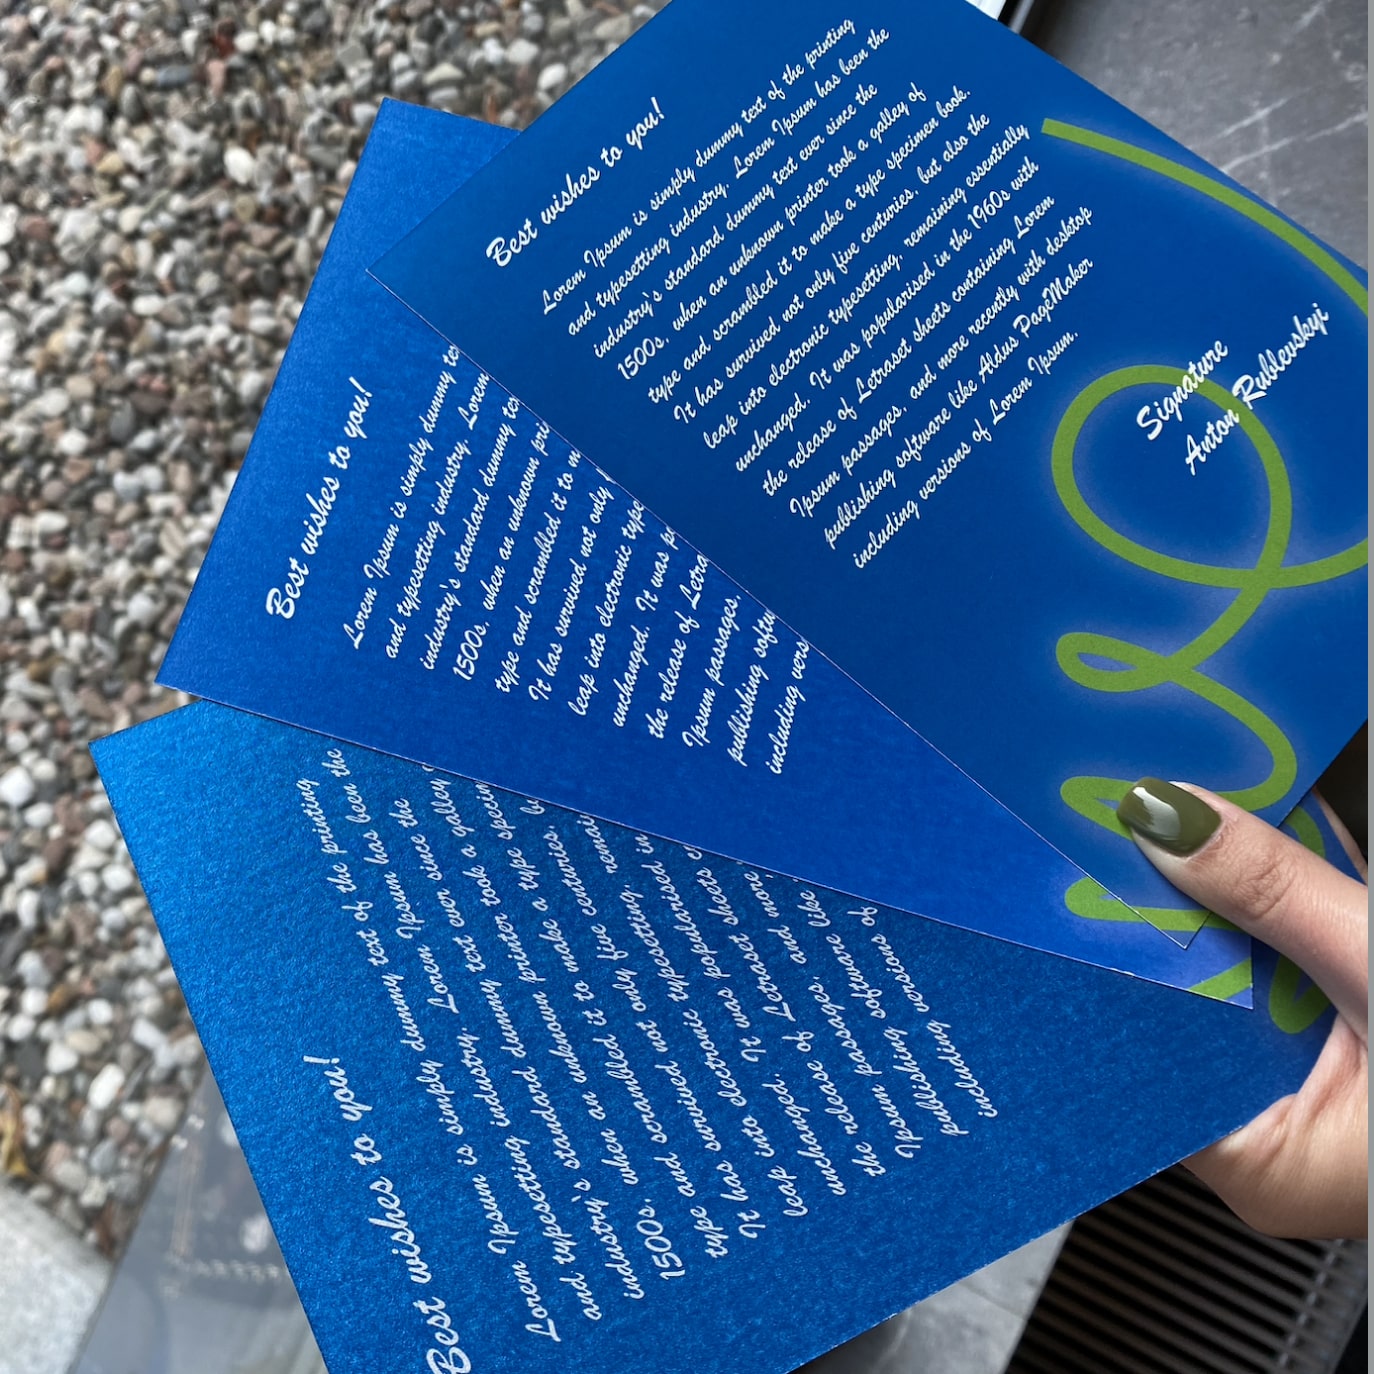 Best wishes to you!
Lorem Ipsum is simply dummy text of the printing
and typesetting industry. Lorem Ipsum has been the
industry's standard dummy text ever since the
1500s, when an unknown printer took a galley of
type and scrambled it to make a type specimen book.
It has survived not only five centuries, but also the
leap into electronic typesetting, remaining essentially
unchanged. It was popularised in the 1960s with
the release of Letraset sheets containing Lorem
Ipsum passages, and more recently with desktop
publishing software like Aldus PageMaker
including versions of Lorem Ipsum.
Signature
Anton Rublevskyi
Best wishes to you!
Lorem Ipsum is simply dummy
and typesetting industry. Lorem
industry's standard dummy
1500s, when an unknown
type and scrambled it to
It has survived not only
leap into electronic
unchanged. It was
the release of
Ipsum passages,
publishing
including
Best wishes to you!
Lorem Ipsum is simply dummy text of the printing
and typesetting industry. Lorem Ipsum has been the
industry's standard dummy text ever since the
1500s, when an unknown printer took a galley
type and scrambled it to make a type
It has survived not only five centuries,
leap into electronic typesetting,
unchanged. It was popularised in
the release of Letraset sheets
Ipsum passages, and more
publishing software like
including versions of